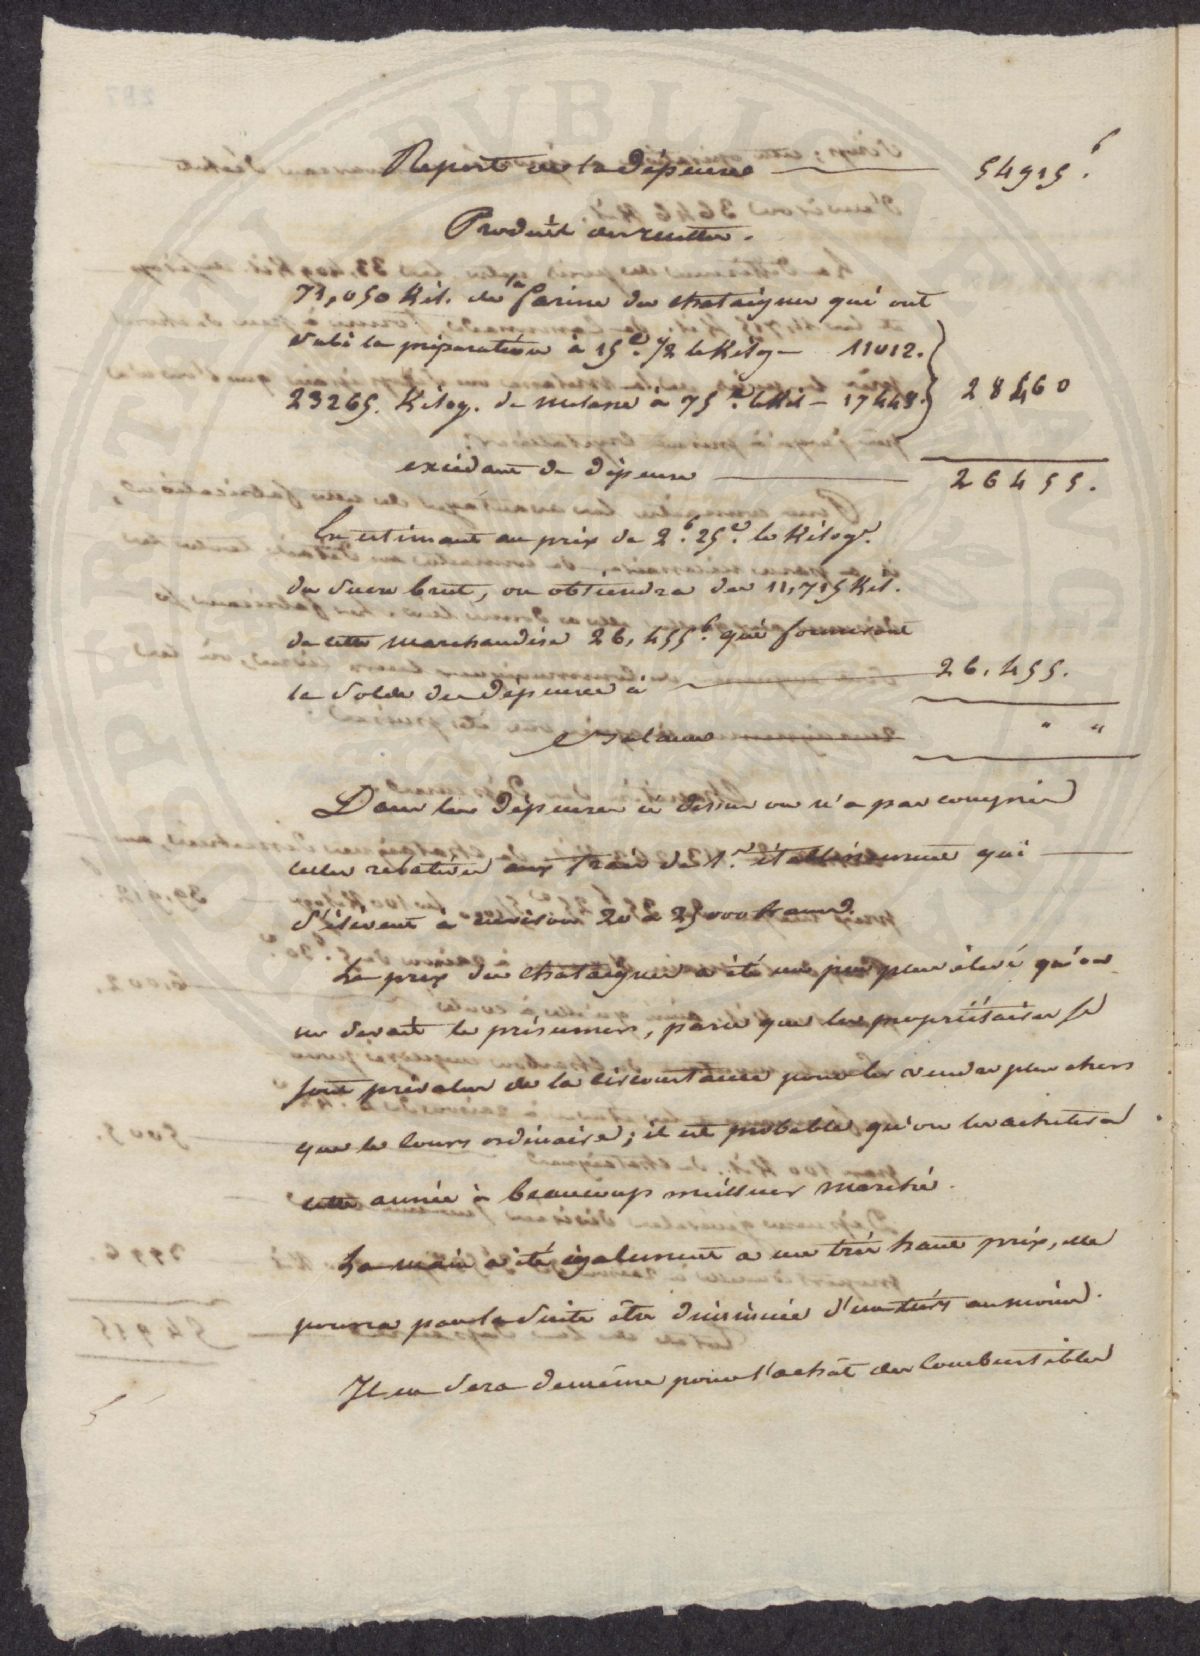 Report de la dépense 54915.f
Produit des ventes.
71,050 Kil. de la farine de chataignes qui ont
subi la préparation à 15 c. 1/2 le Kilog. 11012.
23265. Kilog. de melasse à 75 c. le Kil. 17448. 28460
excédant de dépense 26455.
En estimant au prix de 2f. 25c. le Kilogr.
du sucre brut, on obtiendra des 11,715 Kil.
de cette marchandise 26,455f. qui formeront
le solde des dépenses à 26,455.
Balance " "
Dans les dépenses ci dessus on n'a pas compris
celles relatives aux frais de 1.er établissement qui
s'élèvent à environ 20 à 25000 francs
Le prix des chataignes a été un peu plus élevé qu'on
ne devait le présumer, parce que les propriétaires se
sont prévalus de la circonstance pour les vendre plus chers
que le cours ordinaire; il est probable qu'on les achetera
cette année à beaucoup meilleur marché.
La main a été également a un très haut prix, elle
pourra par la suite être diminuée d'un tiers au moins.
Il en sera de même pour l'achat des combustibles